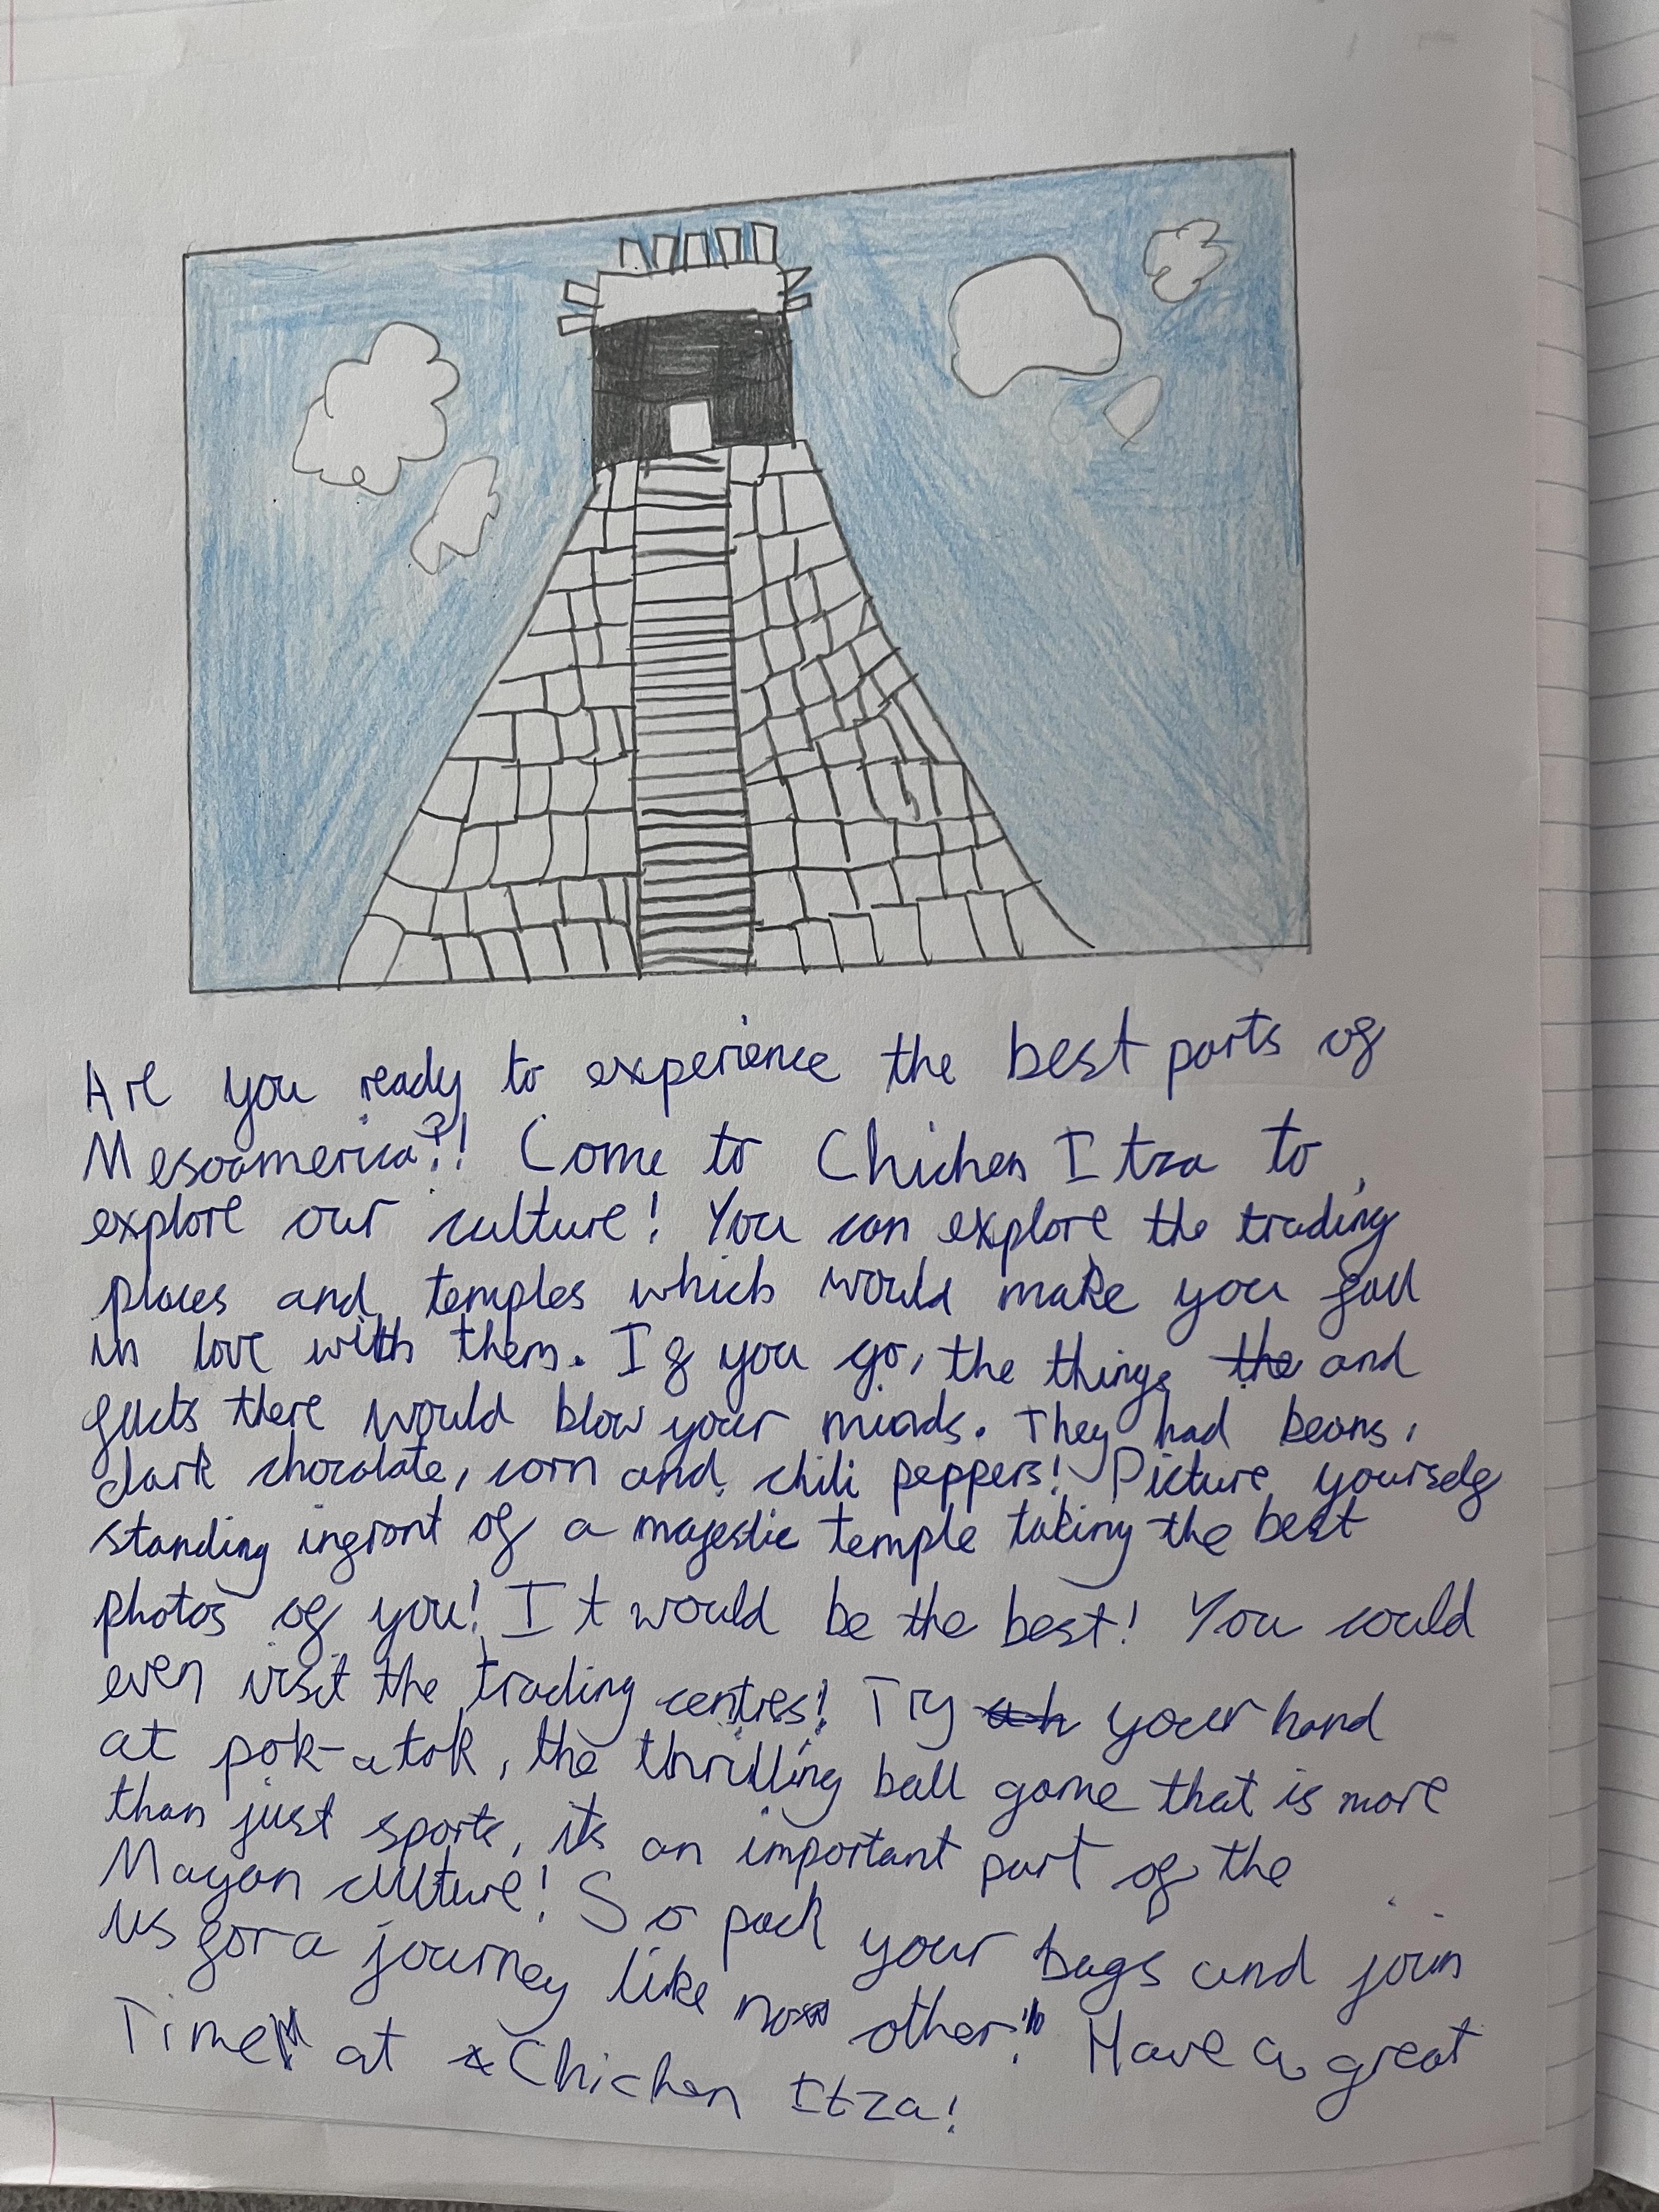 Are you ready to experience the best parts of
Mesoamerica?! Come to Chichen Itza to
explore our culture! You can explore the trading
places and temples which would make you fall
in love with them. If you go, the things the and
facts there would blow your minds. They had beans,
dark chocolate, corn and chili peppers! Picture yourself
standing infront of a majestic temple taking the best
photos of you! It would be the best! You could
even visit the trading centres! Try your hand
at pok-a tok, the thrilling ball game that is more
than just sports, its an important part of the
Mayan culture! So pack your bags and join
us for a journey like no other! Have a great
Time at Chichen Itza!